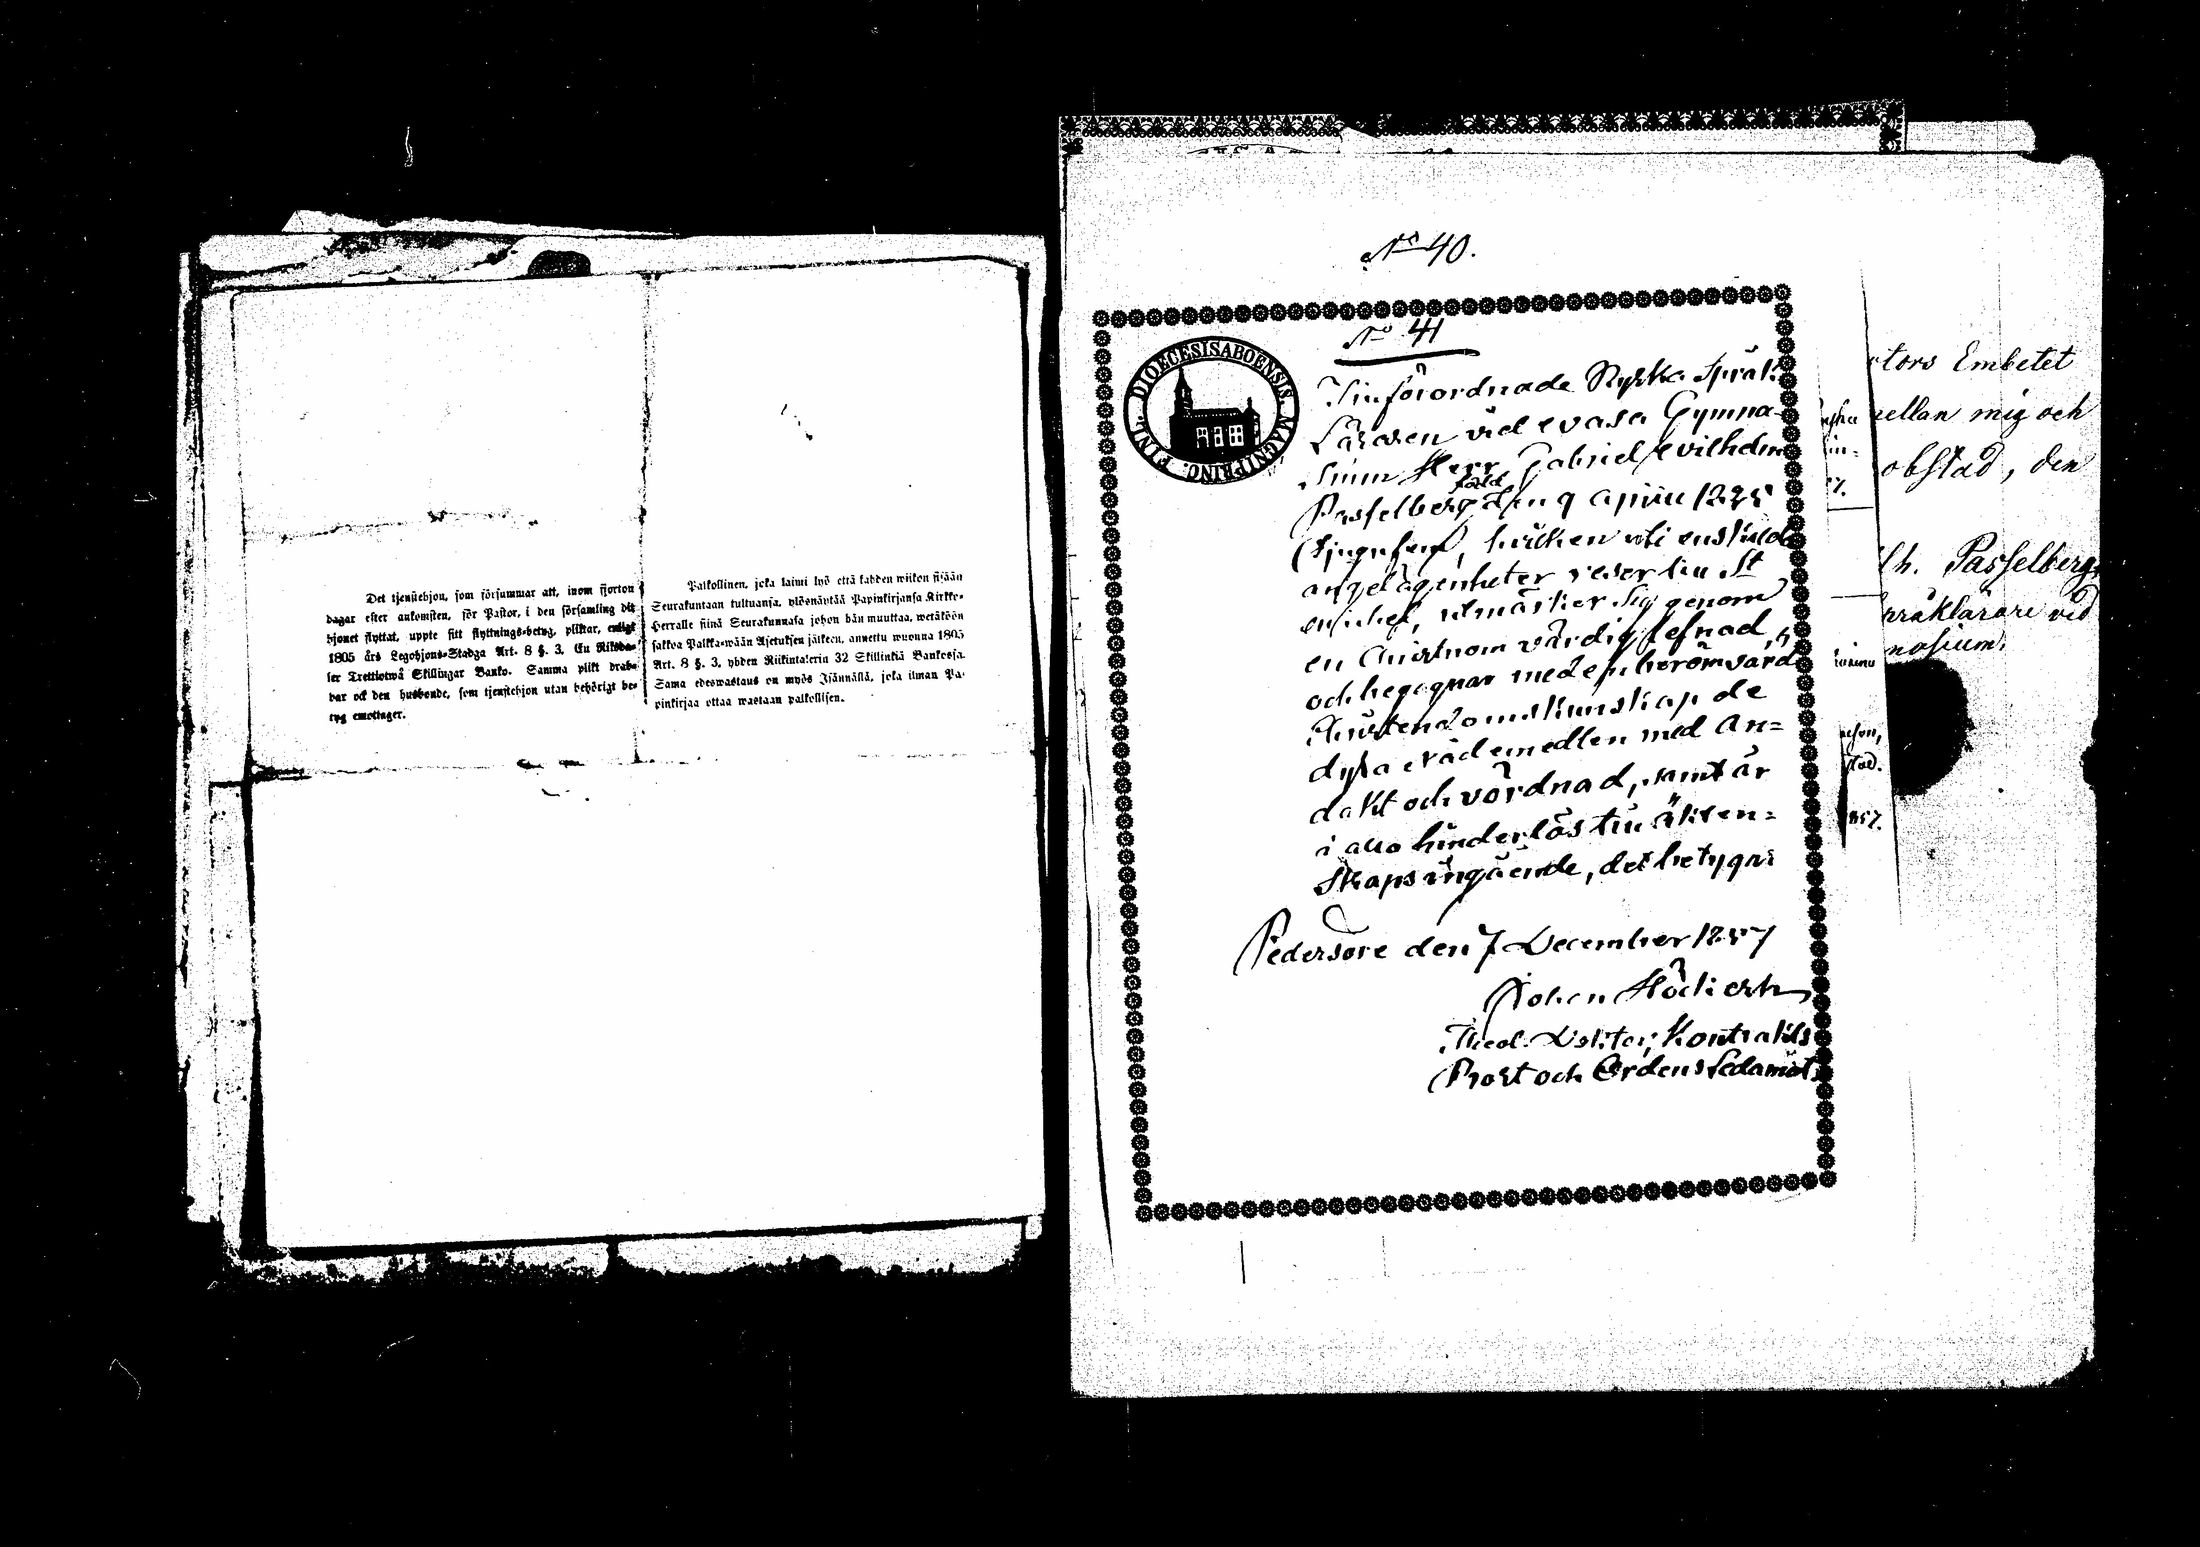 Det tjenstehjon, som försummar att, inom fjorton
dagar efter ankomsten, för Pastor, i den församling dit
hjonet flyttat, uppte sitt flyttnings-betyg, pliktar, enligt
1805 års Legohjons-Stadga Art. 8 §. 3, En Riksda-
ler Trettiotwå Skillingar Banko. Samma plikt drab-
bar ock den husbonde, som tjenstehjon utan behörigt be-
tyg emottager.
Palkollinen, joka laimi lyö että kahden wiikon sisään
Seurakuntaan tultuansa, ylösnäyttää Papinkirjansa Kirkko-
Herralle siinä Seurakunnasa johon hän muuttaa, wetäköön
sakkoa Palkka-wään Asetuksen jälkeen, annettu wuonna 1805
Art. 8 §. 3, yhden Riikintalerin 32 Skillinkiä Bankossa.
Sama edeswastaus on myös Isännällä, joka ilman Pa-
pinkirjaa ottaa wastaan palkollisen.
No 40.
No 41
DIOECESIS ABOENSIS. MAGNI PRINC. FINL.
Tillförordnade Ryska Språk
Läraren vid Wasa Gymna-
sium Herr Gabriel Wilhelm
Passelberg född den 9 April
hvilken uti enskilda
angelägenheter reser till St
utmärker sig genom
en Christnom värdig lefnad,
och begagnar med en berömvärd
Christendomskunskap de
dyra nådemedlen med An=
dakt och vördnad, samt är
i allo hinderlös till äkten=
skaps ingående, det betygar
Pedersöre den 7 December 1857
Johan
Theol. Doktor, Kontrakts
Prost och Ordens Ledamot
tors Embetet
mellan mig och
obstad, den
lh. Passelberg,
språklärare vid
nasium.